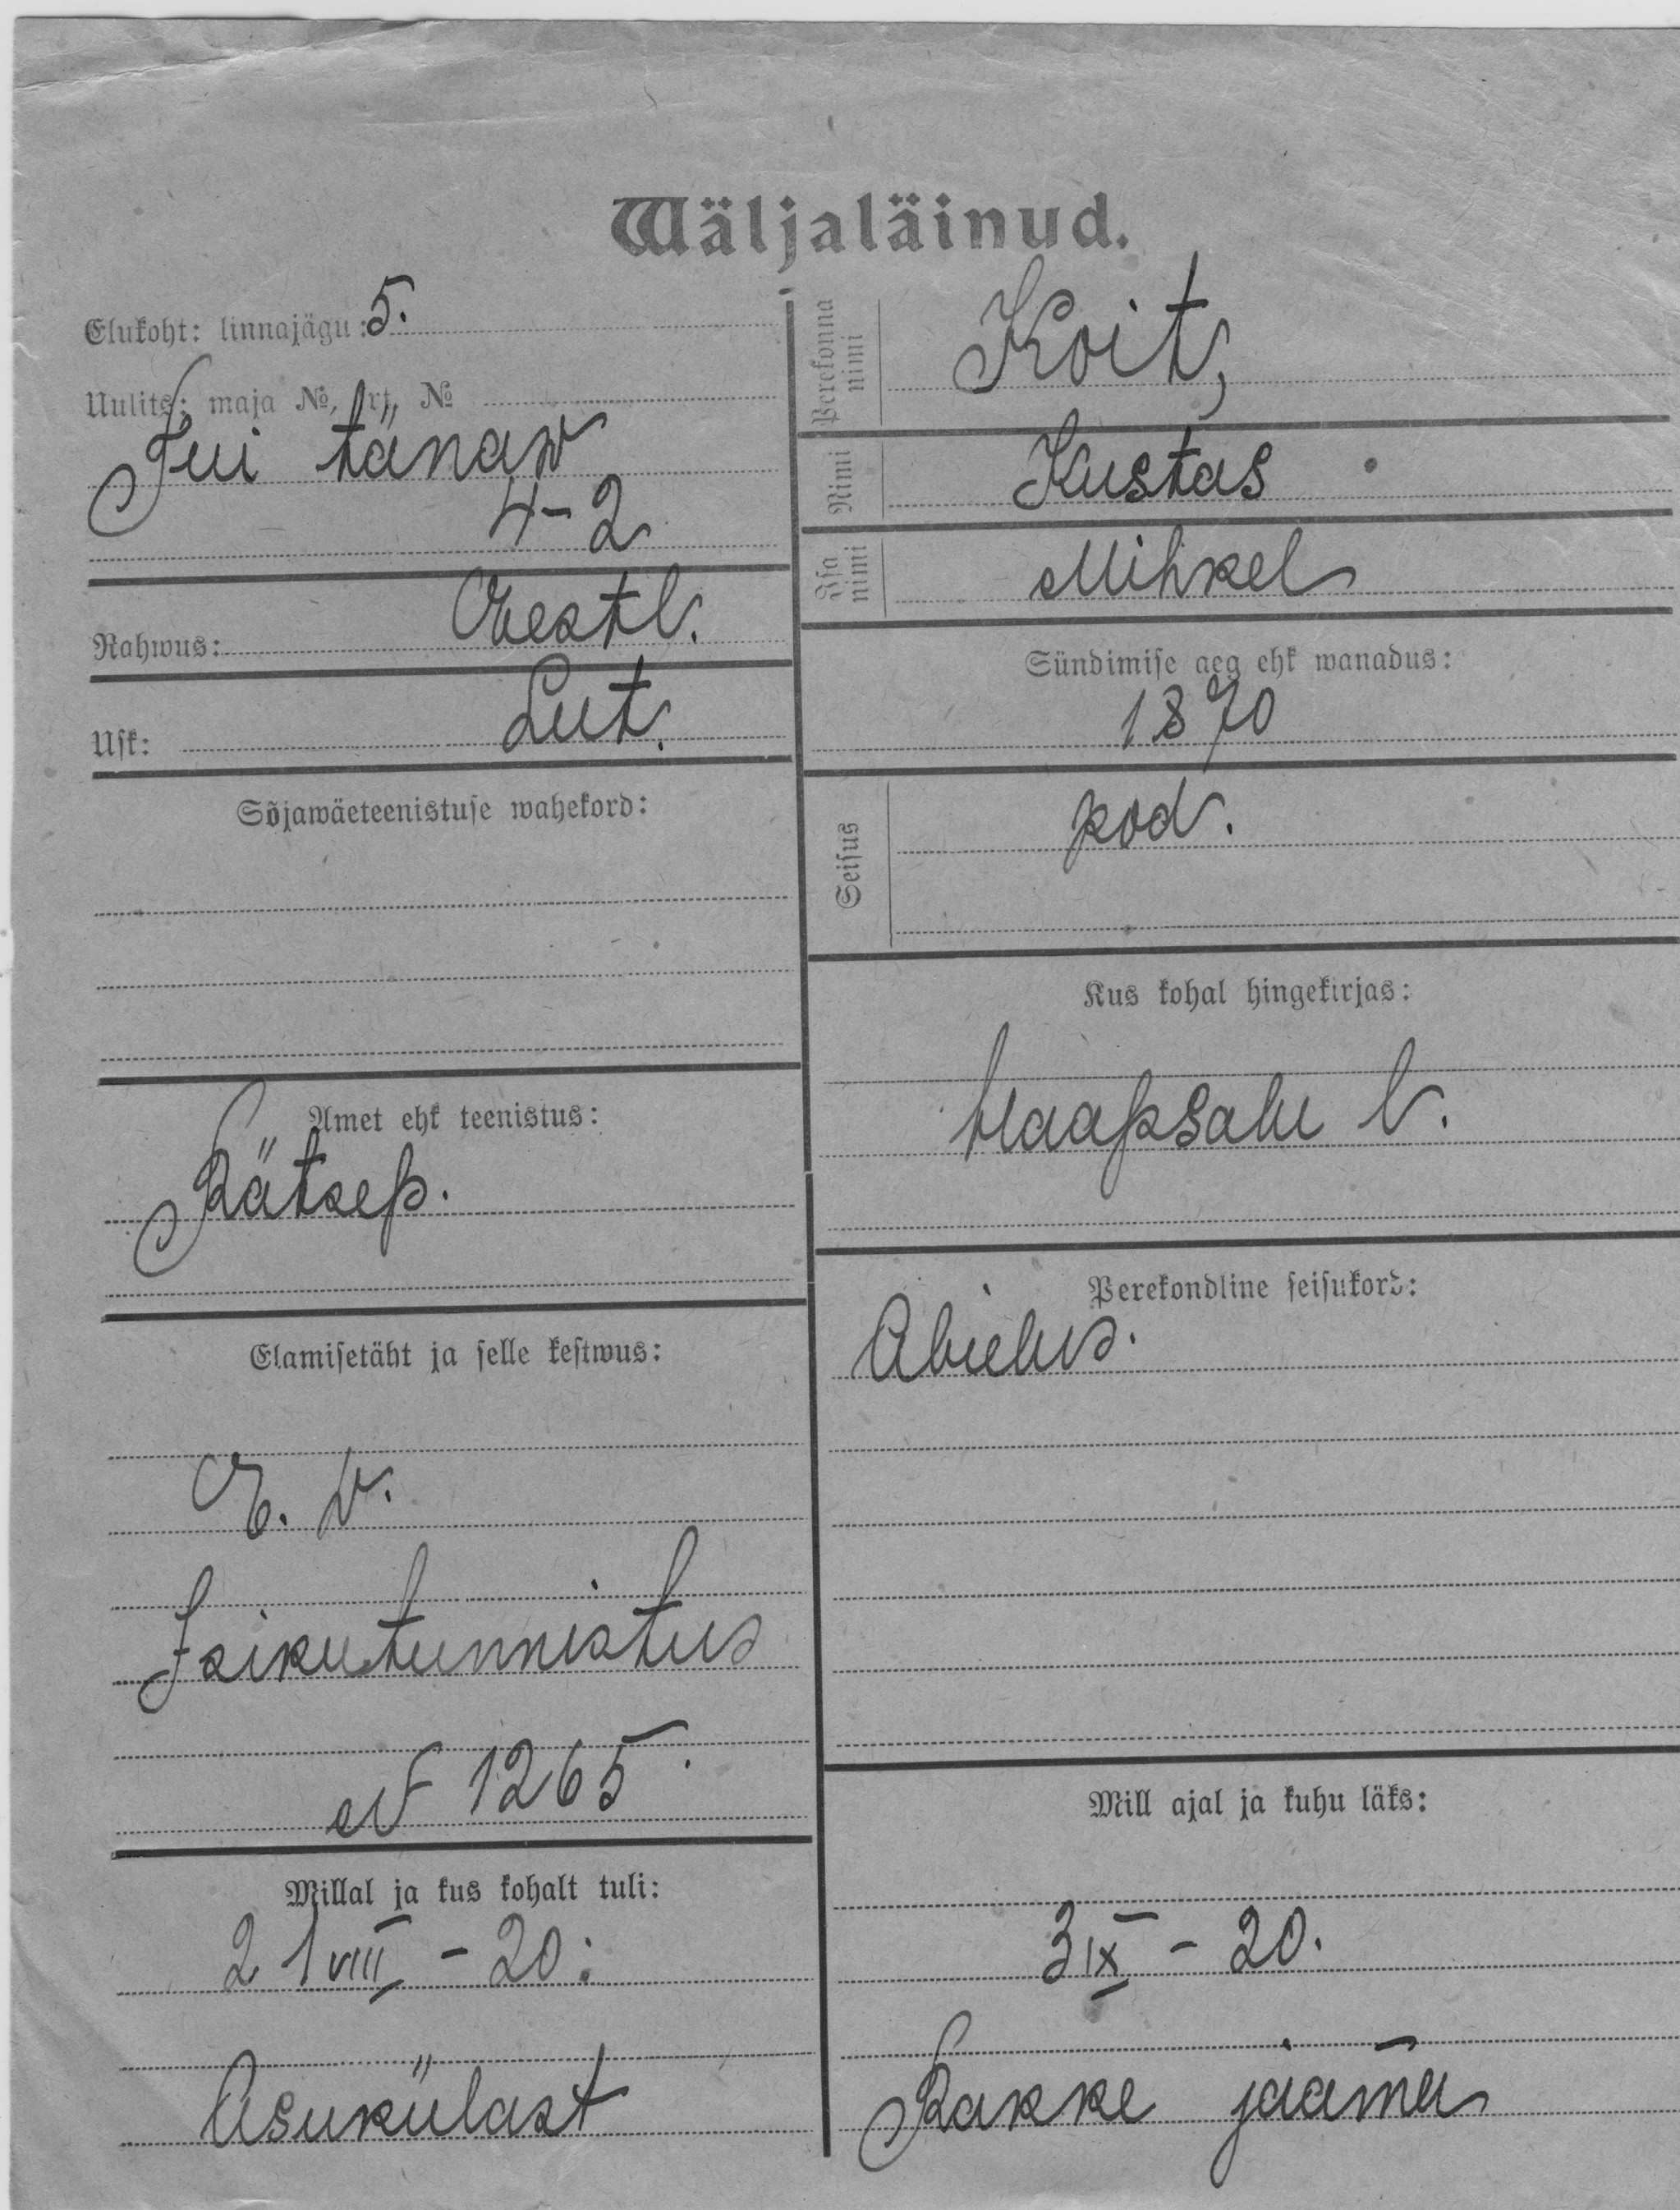 Wäljaläinud.
Elukoht: linnajägu: 5.
Uulits: maja №, krt. №
Tui tänaw
4-2
Rahwus: Eestl.
Usk: Lut.
Sõjawäeteenistuse wahekord:
Amet ehk teenistus:
Rätsep.
Elamisetäht ja selle kestwus:
E. W.
Isikutunnistus
№ 1265
Millal ja kus kohalt tuli:
21 VIII - 20.
Asukülast
Perekonna nimi
Koit,
Nimi
Kustas
Isa nimi
Mihkel
Sündimise aeg ehk wanadus:
1870
Seisus
kod.
Kus kohal hingekirjas:
Haapsalu l.
Perekondline seisukord:
Abielus.
Mill ajal ja kuhu läks:
3 IX - 20.
Rakke jaama